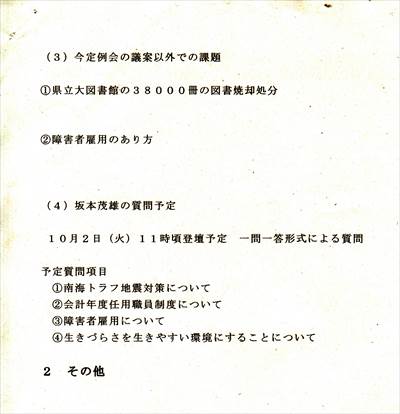 （３）今定例会の議案以外での課題
①県立大図書館の３８０００冊の図書焼却処分
②障害者雇用のあり方
（４）坂本茂雄の質問予定
１０月２日（火）１１時頃登壇予定　一問一答形式による質問
予定質問項目
①南海トラフ地震対策について
②会計年度任用職員制度について
③障害者雇用について
④生きづらさを生きやすい環境にすることについて
２　その他